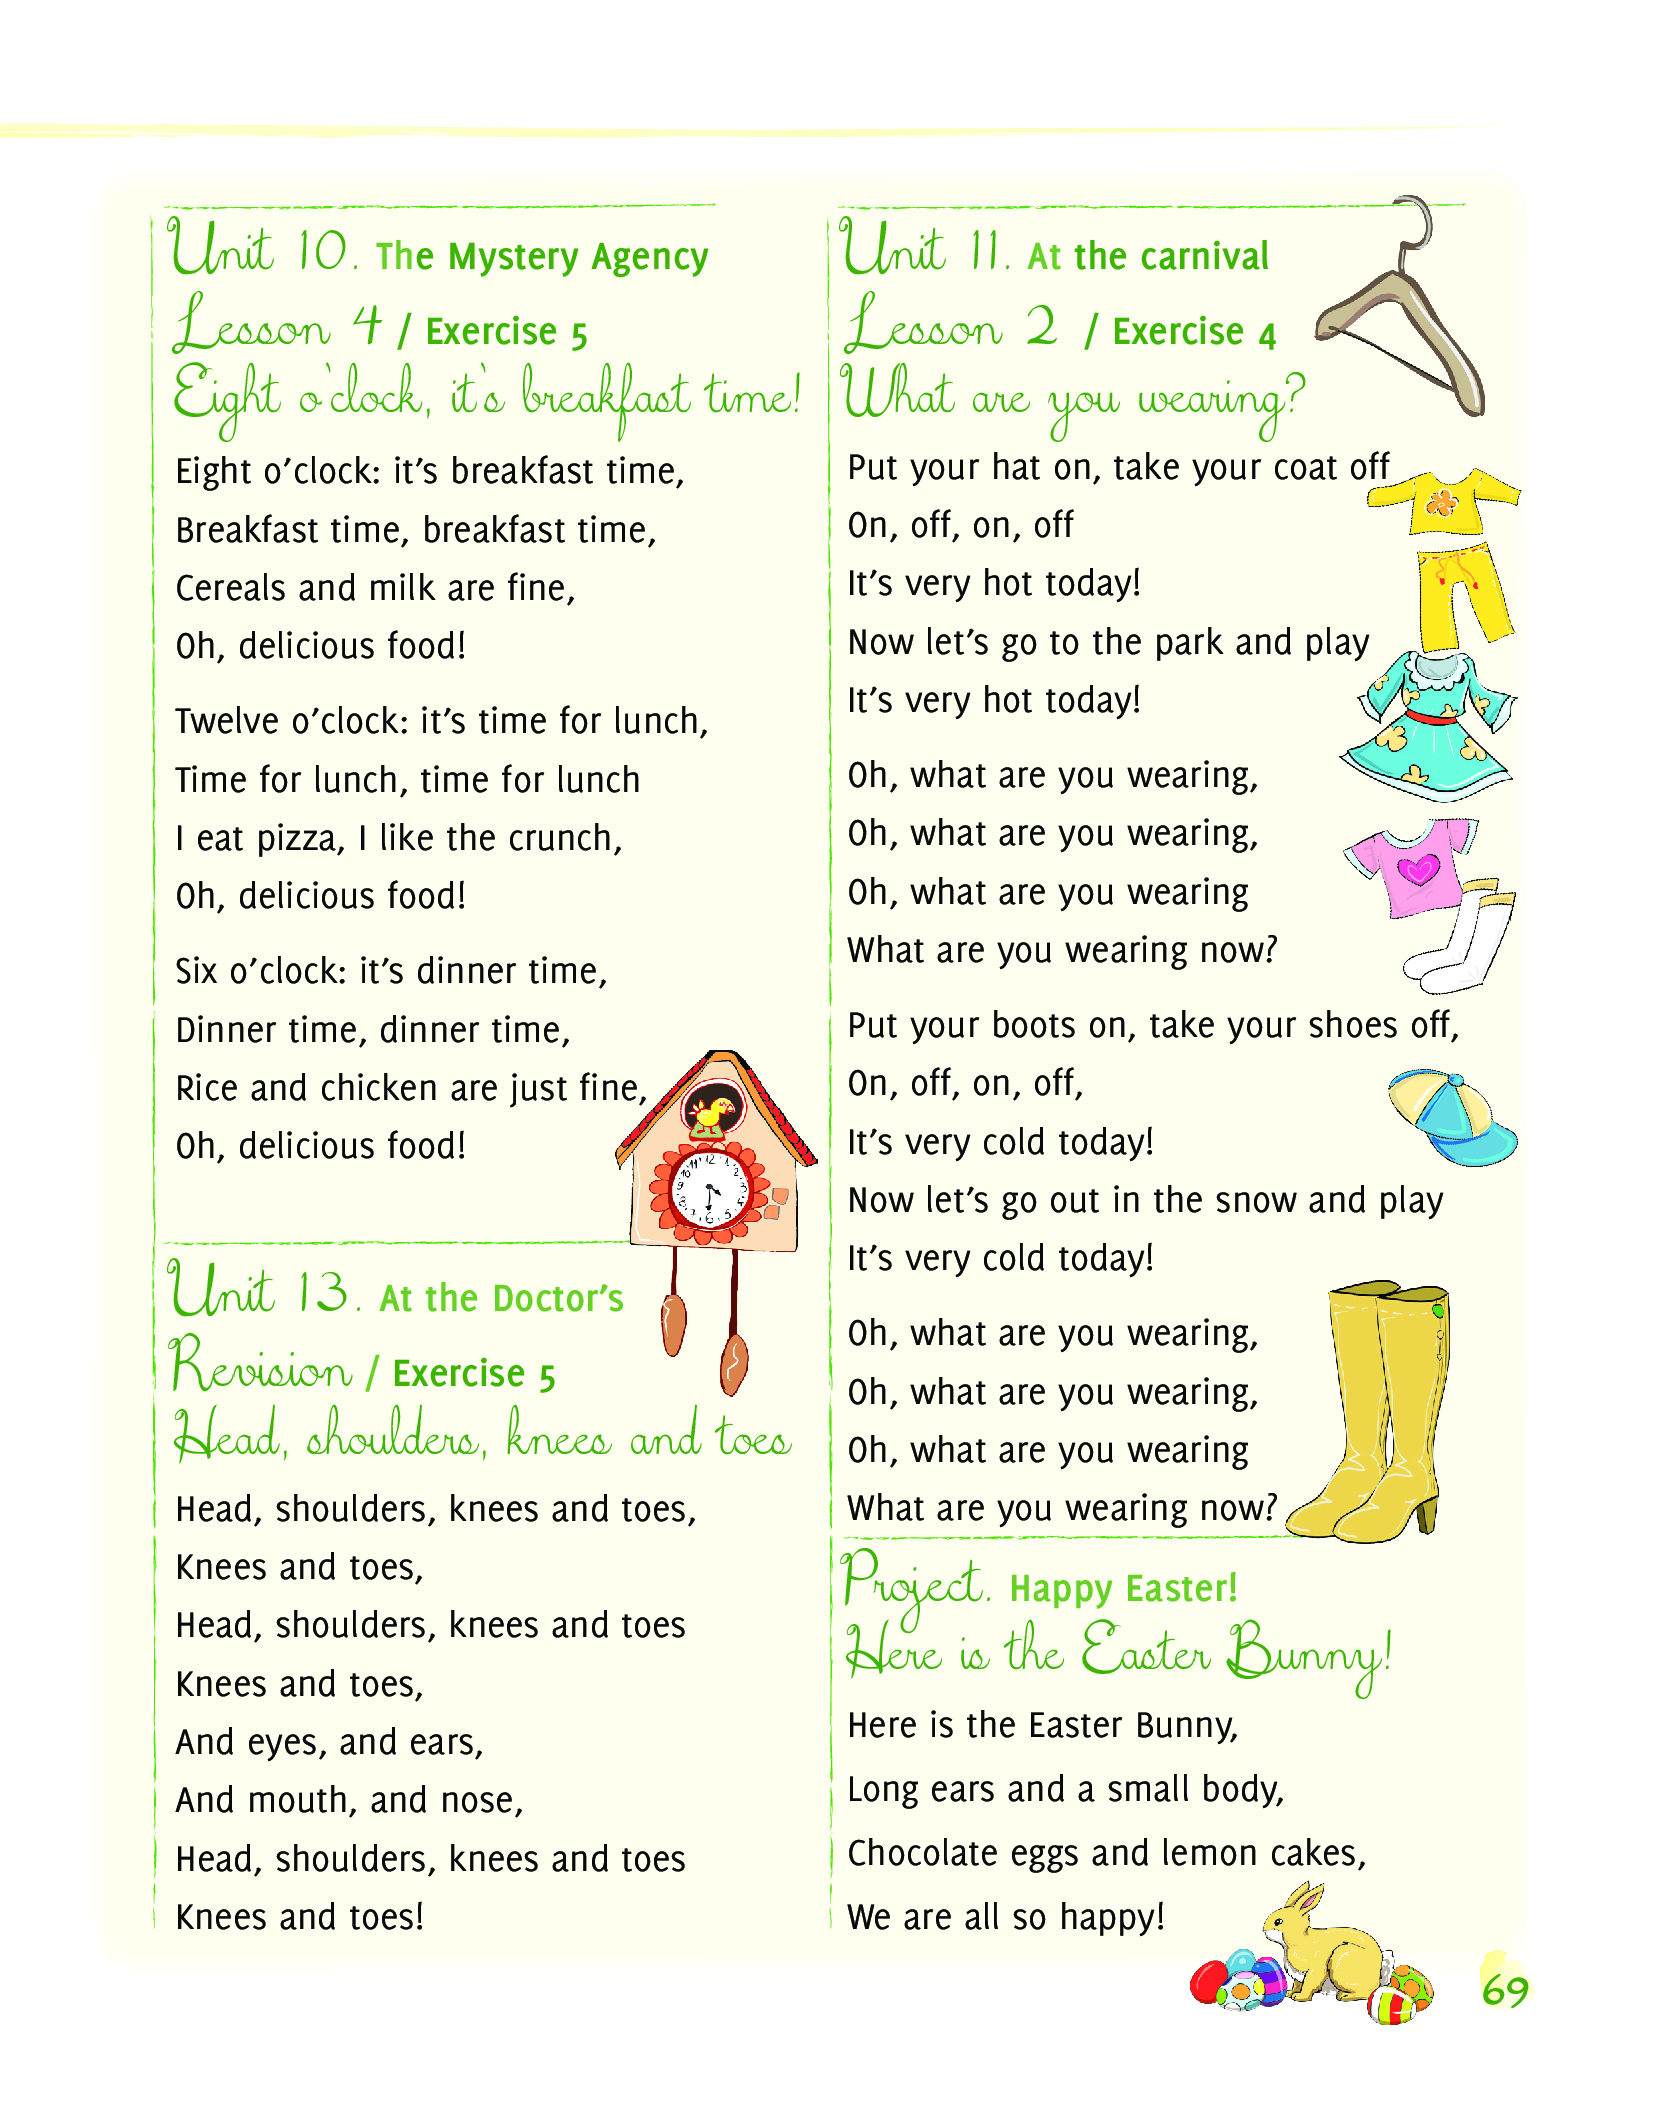 Unit 10. The Mystery Agency
Lesson 4 / Exercise 5
Eight o'clock, it's breakfast time!
Eight o’clock: it’s breakfast time,
Breakfast time, breakfast time,
Cereals and milk are fine,
Oh, delicious food!
Twelve o’clock: it’s time for lunch,
Time for lunch, time for lunch
I eat pizza, I like the crunch,
Oh, delicious food!
Six o’clock: it’s dinner time,
Dinner time, dinner time,
Rice and chicken are just fine,
Oh, delicious food!
Unit 13. At the Doctor’s
Revision / Exercise 5
Head, shoulders, knees and toes
Head, shoulders, knees and toes,
Knees and toes,
Head, shoulders, knees and toes
Knees and toes,
And eyes, and ears,
And mouth, and nose,
Head, shoulders, knees and toes
Knees and toes!
Unit 11. At the carnival
Lesson 2 / Exercise 4
What are you wearing?
Put your hat on, take your coat off
On, off, on, off
It’s very hot today!
Now let’s go to the park and play
It’s very hot today!
Oh, what are you wearing,
Oh, what are you wearing,
Oh, what are you wearing
What are you wearing now?
Put your boots on, take your shoes off,
On, off, on, off,
It’s very cold today!
Now let’s go out in the snow and play
It’s very cold today!
Oh, what are you wearing,
Oh, what are you wearing,
Oh, what are you wearing
What are you wearing now?
Project. Happy Easter!
Here is the Easter Bunny!
Here is the Easter Bunny,
Long ears and a small body,
Chocolate eggs and lemon cakes,
We are all so happy!
69